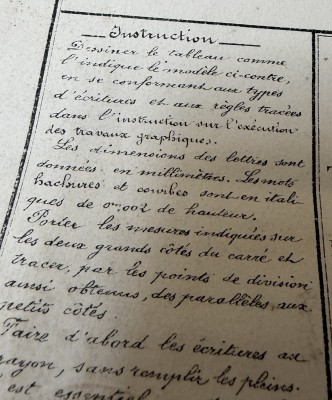 Instruction
Dessiner le tableau comme
l'indique le modèle ci-contre,
en se conformant aux types
d'écritures et aux règles tracées
dans l'instruction sur l'exécution
des travaux graphiques.
Les dimensions des lettres sont
données en millimètres. Les mots
hachures et courbes sont en itali-
ques de 0m,002 de hauteur.
Porter les mesures indiquées sur
les deux grands côtés du carré et
tracer, par les points de division
ainsi obtenus, des parallèles aux
petits côtés.
Faire d'abord les écritures au
rayon, sans remplir les pleins.
est essentiel